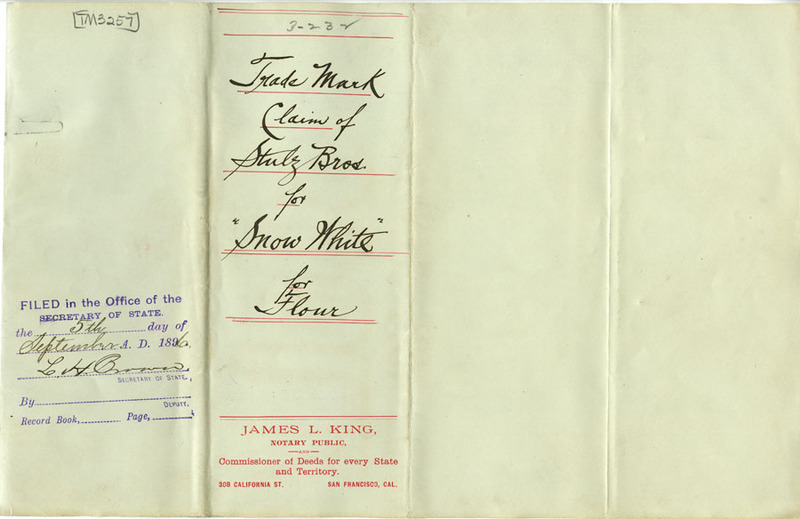 TM3257
FILED in the Office of the
SECRETARY OF STATE.
the 5th day of
September A. D. 1896
L. H. Brown
SECRETARY OF STATE.
By
DEPUTY.
Record Book, Page,
3-232
Trade Mark
Claim of
Stulz Bros.
for
"Snow White"
for
Flour
JAMES L. KING,
NOTARY PUBLIC,
AND
Commissioner of Deeds for every State
and Territory.
308 CALIFORNIA ST. SAN FRANCISCO, CAL.